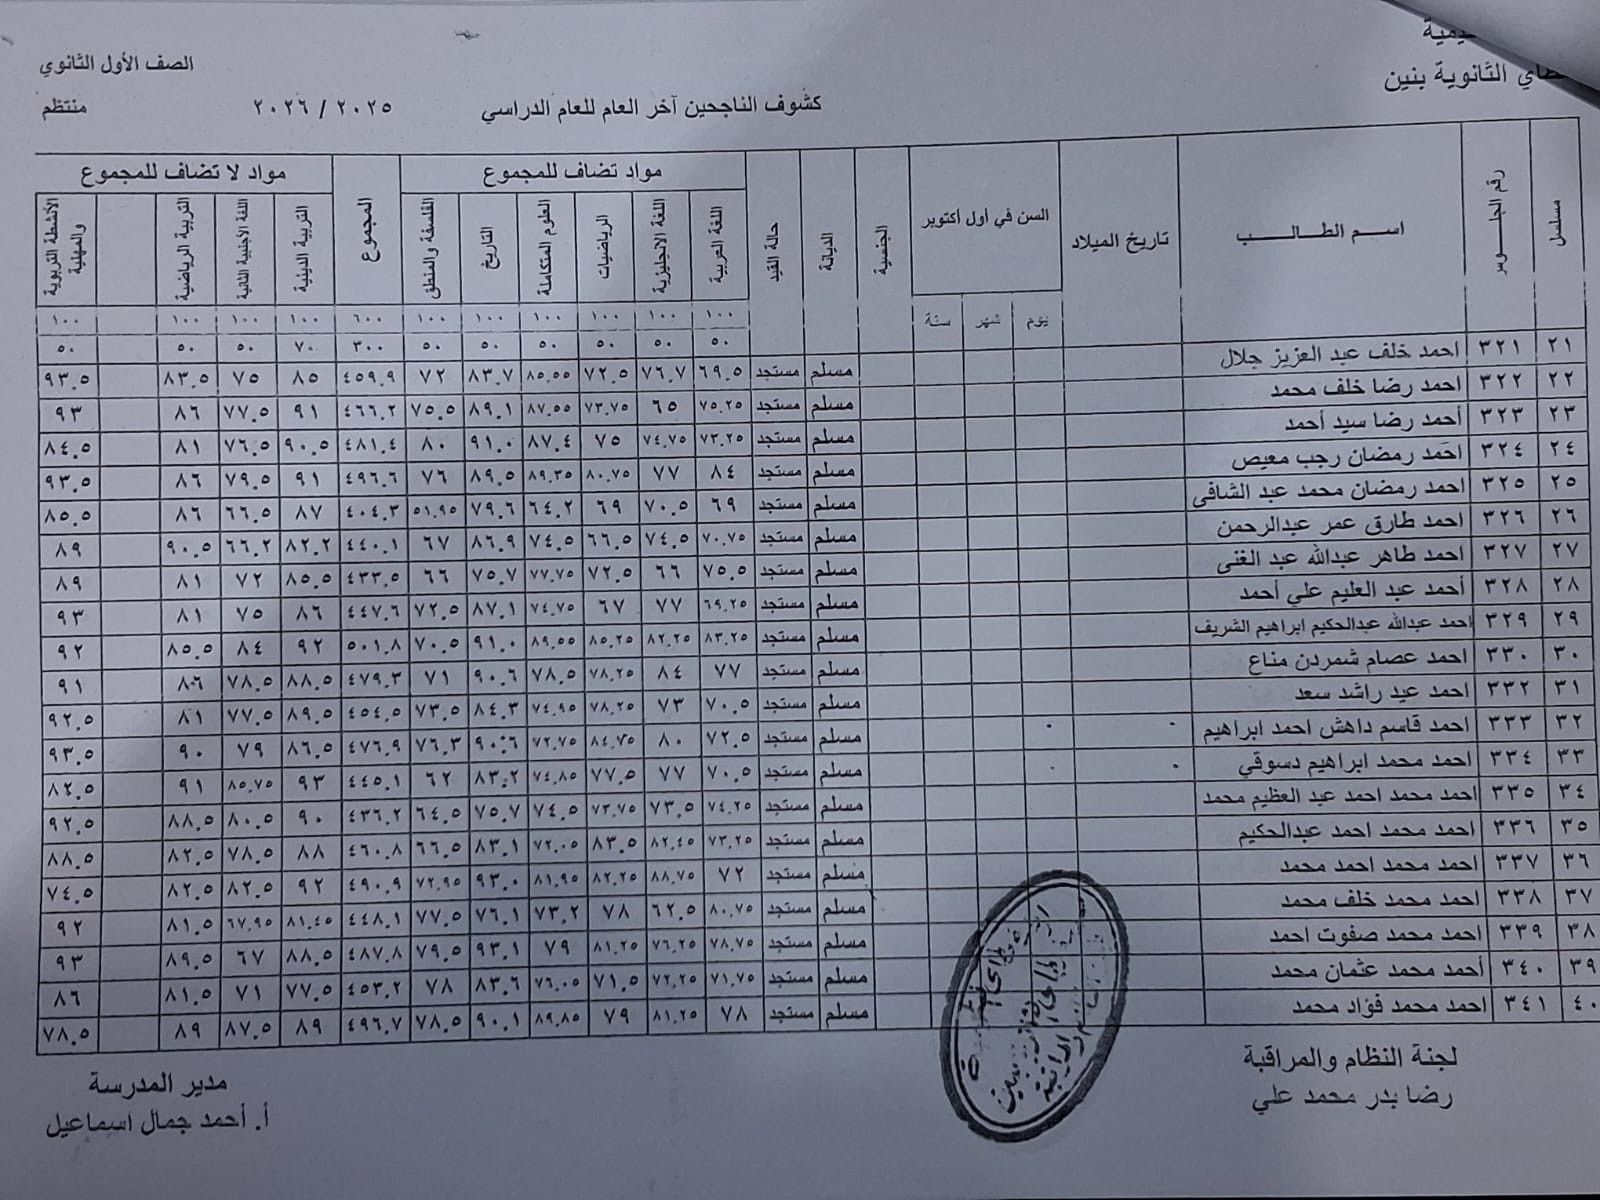 الثانوية بنين
الصف الأول الثانوي
كشوف الناجحين آخر العام للعام الدراسي ٢٠٢٥ / ٢٠٢٦
منتظم
مسلسل رقم الجلوس اسم الطالب تاريخ الميلاد السن في أول أكتوبر الجنسية الديانة حالة القيد مواد تضاف للمجموع المجموع مواد لا تضاف للمجموع
يوم شهر سنة اللغة العربية اللغة الانجليزية الرياضيات العلوم المتكاملة التاريخ الفلسفة والمنطق التربية الدينية اللغة الأجنبية الثانية التربية الرياضية الأنشطة التربوية والمهنية
١٠٠ ١٠٠ ١٠٠ ١٠٠ ١٠٠ ١٠٠ ٦٠٠ ١٠٠ ١٠٠ ١٠٠ ١٠٠
٥٠ ٥٠ ٥٠ ٥٠ ٥٠ ٥٠ ٣٠٠ ٧٠ ٥٠ ٥٠ ٥٠
٢١ ٣٢١ احمد خلف عبد العزيز جلال مسلم مستجد ٦٩.٥ ٧٦.٧ ٧٢.٥ ٨٥.٥٥ ٨٣.٧ ٧٢ ٤٥٩.٩ ٨٥ ٧٥ ٨٣.٥ ٩٣.٥
٢٢ ٣٢٢ احمد رضا خلف محمد مسلم مستجد ٧٥.٢٥ ٦٥ ٧٣.٧٥ ٨٧.٥٥ ٨٩.١ ٧٥.٥ ٤٦٦.٢ ٩١ ٧٧.٥ ٨٦ ٩٣
٢٣ ٣٢٣ أحمد رضا سيد أحمد مسلم مستجد ٧٣.٢٥ ٧٤.٧٥ ٧٥ ٨٧.٤ ٩١.٠ ٨٠ ٤٨١.٤ ٩٠.٥ ٧٦.٥ ٨١ ٨٤.٥
٢٤ ٣٢٤ احمد رمضان رجب معيص مسلم مستجد ٨٤ ٧٧ ٨٠.٧٥ ٨٩.٣٥ ٨٩.٥ ٧٦ ٤٩٦.٦ ٩١ ٧٩.٥ ٨٦ ٩٣.٥
٢٥ ٣٢٥ احمد رمضان محمد عبد الشافى مسلم مستجد ٦٩ ٧٠.٥ ٦٩ ٦٤.٢ ٧٩.٦ ٥١.٩٥ ٤٠٤.٣ ٨٧ ٦٦.٥ ٨٦ ٨٥.٥
٢٦ ٣٢٦ احمد طارق عمر عبدالرحمن مسلم مستجد ٧٠.٧٥ ٧٤.٥ ٦٦.٥ ٧٤.٥ ٨٦.٩ ٦٧ ٤٤٠.١ ٨٢.٢ ٦٦.٢ ٩٠.٥ ٨٩
٢٧ ٣٢٧ احمد طاهر عبدالله عبد الغنى مسلم مستجد ٧٥.٥ ٦٦ ٧٢.٥ ٧٧.٧٥ ٧٥.٧ ٦٦ ٤٣٣.٥ ٨٥.٥ ٧٢ ٨١ ٨٩
٢٨ ٣٢٨ أحمد عبد العليم علي أحمد مسلم مستجد ٦٩.٢٥ ٧٧ ٦٧ ٧٤.٧٥ ٨٧.١ ٧٢.٥ ٤٤٧.٦ ٨٦ ٧٥ ٨١ ٩٣
٢٩ ٣٢٩ احمد عبدالله عبدالحكيم ابراهيم الشريف مسلم مستجد ٨٣.٢٥ ٨٢.٢٥ ٨٥.٢٥ ٨٩.٥٥ ٩١.٠ ٧٠.٥ ٥٠١.٨ ٩٢ ٨٤ ٨٥.٥ ٩٢
٣٠ ٣٣٠ احمد عصام شمردن مناع مسلم مستجد ٧٧ ٨٤ ٧٨.٢٥ ٧٨.٥ ٩٠.٦ ٧١ ٤٧٩.٣ ٨٨.٥ ٧٨.٥ ٨٦ ٩١
٣١ ٣٣٢ احمد عيد راشد سعد مسلم مستجد ٧٠.٥ ٧٣ ٧٨.٢٥ ٧٤.٩٥ ٨٤.٣ ٧٣.٥ ٤٥٤.٥ ٨٩.٥ ٧٧.٥ ٨١ ٩٢.٥
٣٢ ٣٣٣ احمد قاسم داهش احمد ابراهيم مسلم مستجد ٧٢.٥ ٨٠ ٨٤.٧٥ ٧٢.٧٥ ٩٠.٦ ٧٦.٣ ٤٧٦.٩ ٨٦.٥ ٧٩ ٩٠ ٩٣.٥
٣٣ ٣٣٤ احمد محمد ابراهيم دسوقي مسلم مستجد ٧٠.٥ ٧٧ ٧٧.٥ ٧٤.٨٥ ٨٣.٢ ٦٢ ٤٤٥.١ ٩٣ ٨٥.٧٥ ٩١ ٨٢.٥
٣٤ ٣٣٥ احمد محمد احمد عبد العظيم محمد مسلم مستجد ٧٤.٢٥ ٧٣.٥ ٧٣.٧٥ ٧٤.٥ ٧٥.٧ ٦٤.٥ ٤٣٦.٢ ٩٠ ٨٠.٥ ٨٨.٥ ٩٢.٥
٣٥ ٣٣٦ احمد محمد احمد عبدالحكيم مسلم مستجد ٧٣.٢٥ ٨٢.٤٥ ٨٣.٥ ٧٢.٠٥ ٨٣.١ ٦٦.٥ ٤٦٠.٨ ٨٨ ٧٨.٥ ٨٢.٥ ٨٨.٥
٣٦ ٣٣٧ احمد محمد احمد محمد مسلم مستجد ٧٢ ٨٨.٧٥ ٨٢.٢٥ ٨١.٩٥ ٩٣.٠ ٧٢.٩٥ ٤٩٠.٩ ٩٢ ٨٢.٥ ٨٢.٥ ٧٤.٥
٣٧ ٣٣٨ احمد محمد خلف محمد مسلم مستجد ٨٠.٧٥ ٦٢.٥ ٧٨ ٧٣.٢ ٧٦.١ ٧٧.٥ ٤٤٨.١ ٨١.٤٥ ٦٧.٩٥ ٨١.٥ ٩٢
٣٨ ٣٣٩ احمد محمد صفوت احمد مسلم مستجد ٧٨.٧٥ ٧٦.٢٥ ٨١.٢٥ ٧٩ ٩٣.١ ٧٩.٥ ٤٨٧.٨ ٨٨.٥ ٦٧ ٨٩.٥ ٩٣
٣٩ ٣٤٠ أحمد محمد عثمان محمد مسلم مستجد ٧١.٧٥ ٧٢.٢٥ ٧١.٥ ٧٦.٠٥ ٨٣.٦ ٧٨ ٤٥٣.٢ ٧٧.٥ ٧١ ٨١.٥ ٨٦
٤٠ ٣٤١ احمد محمد فؤاد محمد مسلم مستجد ٧٨ ٨١.٢٥ ٧٩ ٨٩.٨٥ ٩٠.١ ٧٨.٥ ٤٩٦.٧ ٨٩ ٨٧.٥ ٨٩ ٧٨.٥
لجنة النظام والمراقبة
رضا بدر محمد علي
مدير المدرسة
أ. أحمد جمال اسماعيل